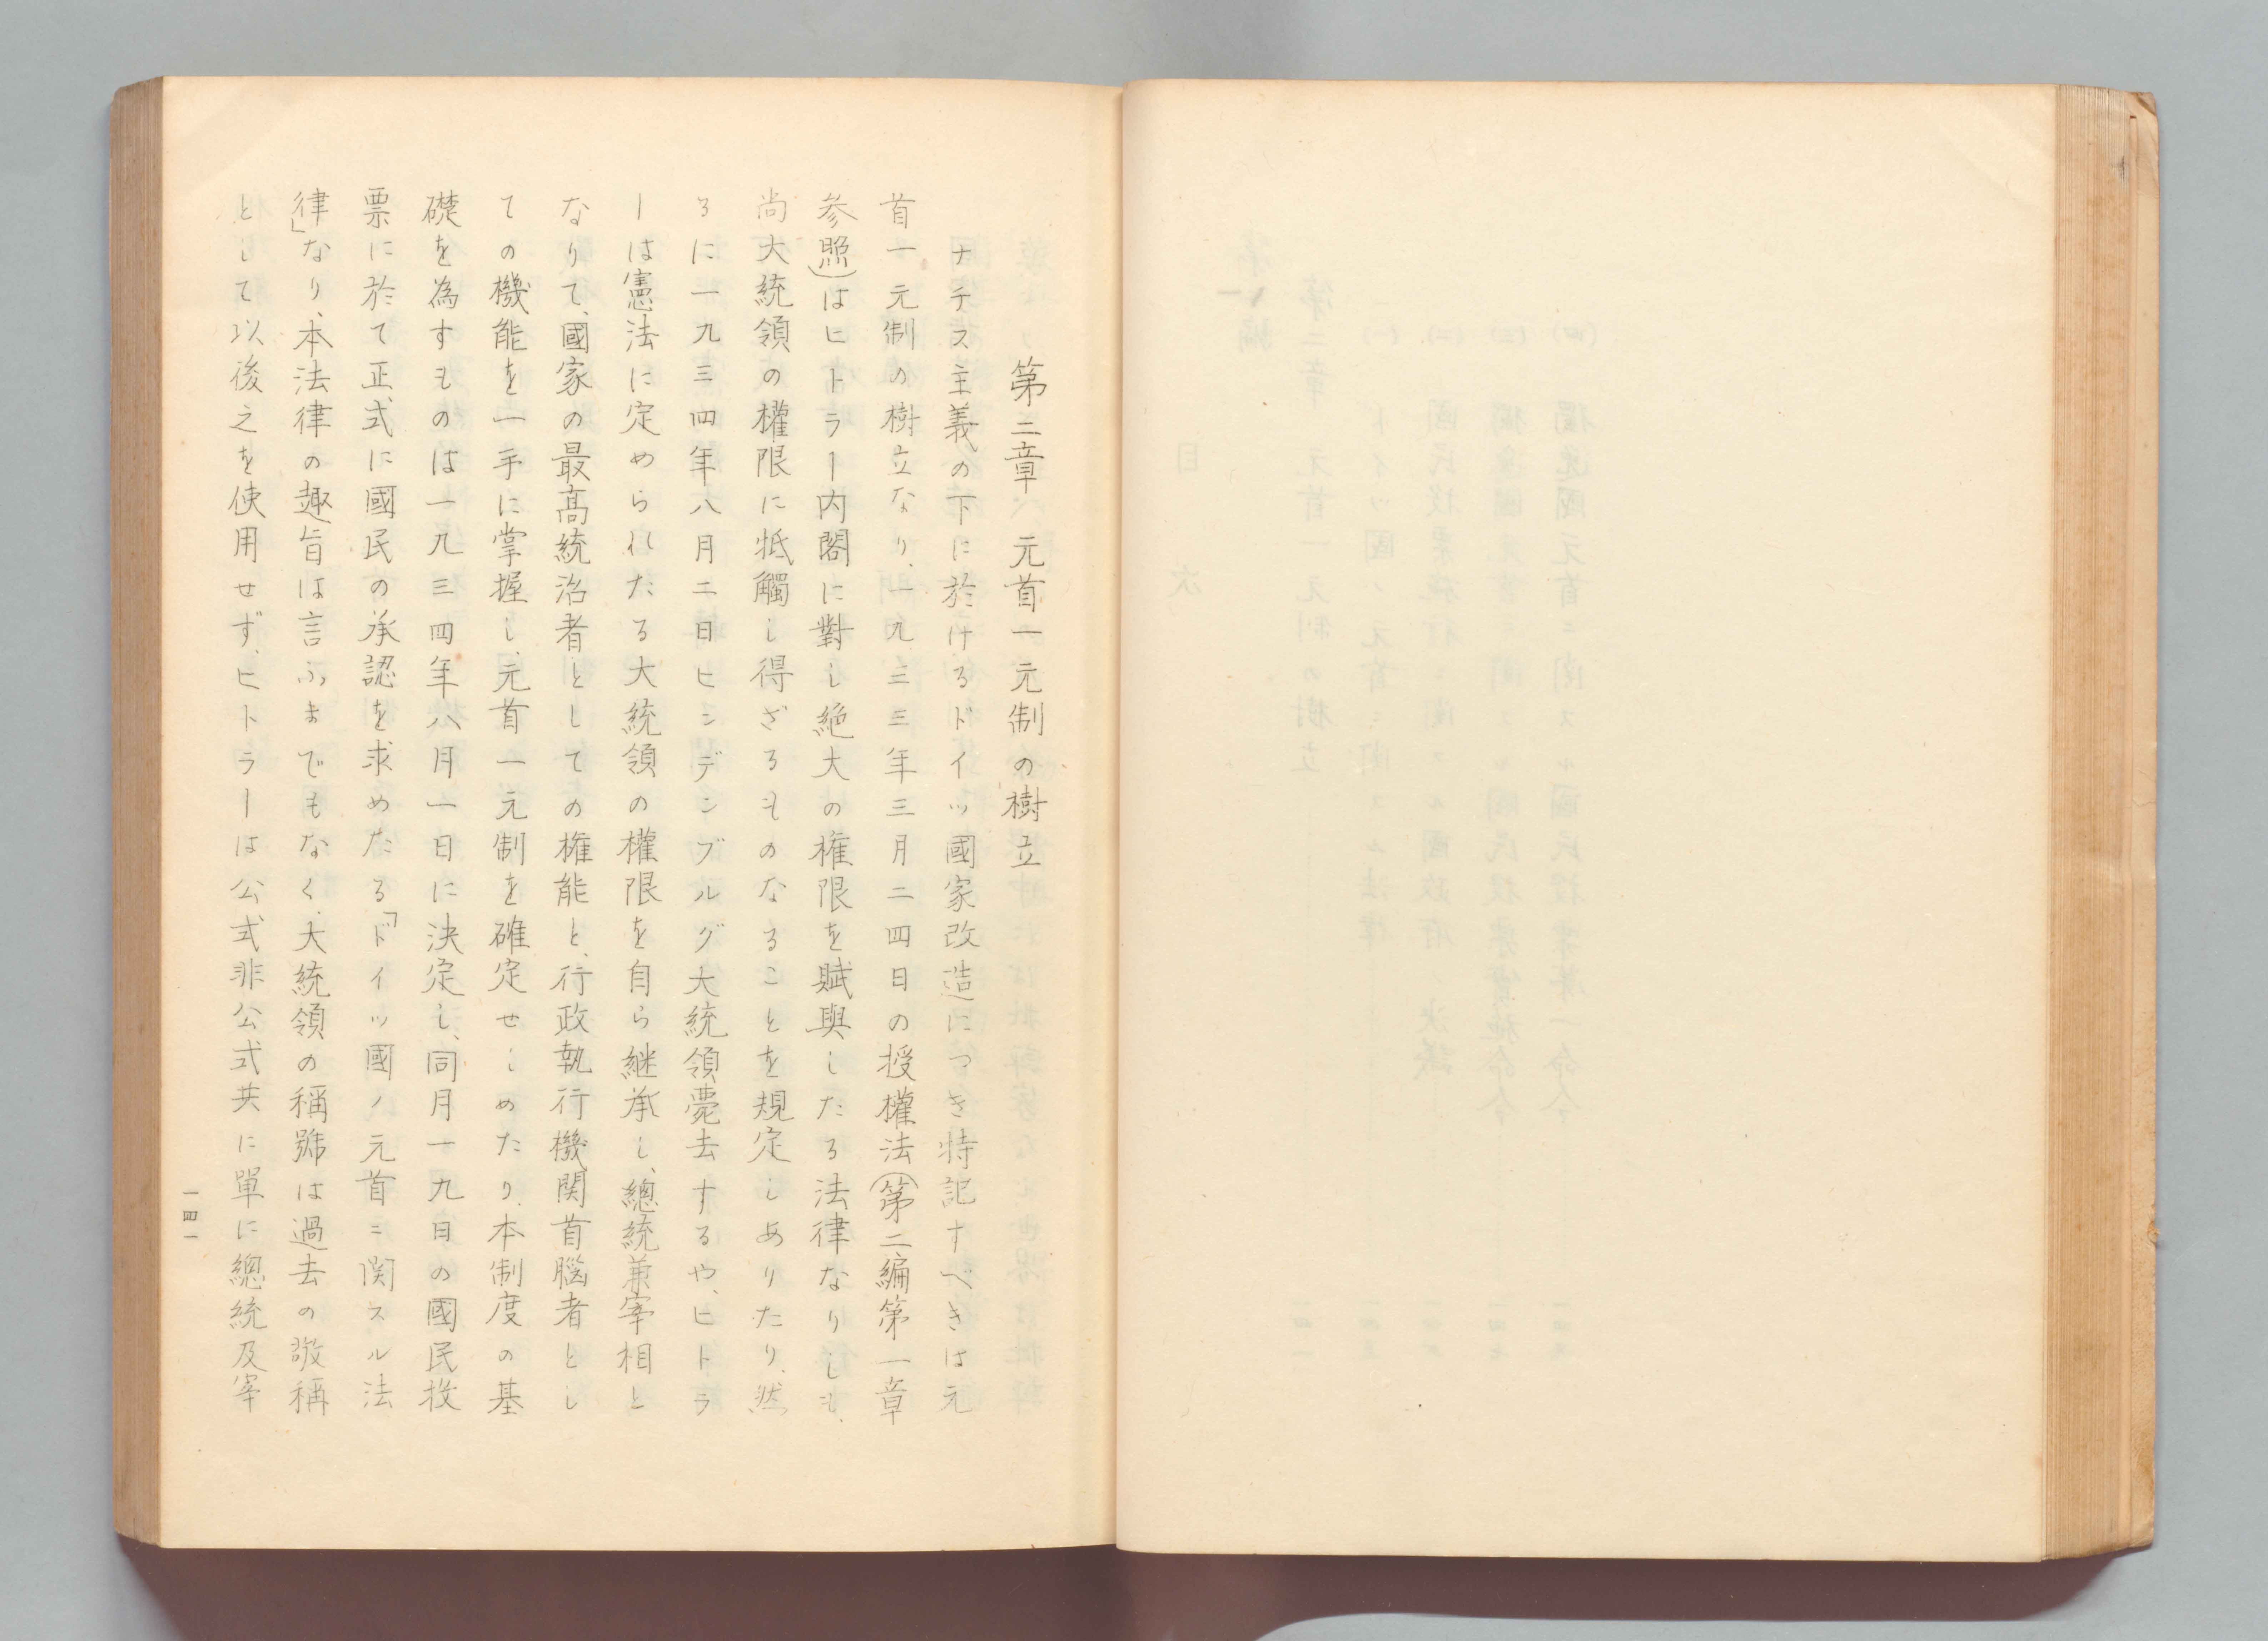 第二章　元首一元制の樹立
ナチス主義の下に於けるドイツ國家改造につき特記すべきは元
首一元制の樹立なり、一九三三年三月二四日の授權法(第二編第一章
参照)はヒトラー内閣に對し絶大の権限を賦與したる法律なりしも、
尚大統領の權限に牴觸し得ざるものなることを規定しありたり、然
るに一九三四年八月二日ヒンデンブルグ大統領薨去するや、ヒトラ
ーは憲法に定められたる大統領の權限を自ら継承し、總統兼宰相と
なりて、國家の最高統治者としての権能と、行政執行機関首腦者とし
ての機能を一手に掌握し、元首一元制を確定せしめたり、本制度の基
礎を為すものは一九三四年八月一日に決定し、同月一九日の國民投
票に於て正式に國民の承認を求めたる「ドイツ國ノ元首ニ関スル法
律」なり、本法律の趣旨は言ふまでもなく、大統領の稱號は過去の敬稱
として以後之を使用せず、ヒトラーは公式非公式共に單に總統及宰
一四一